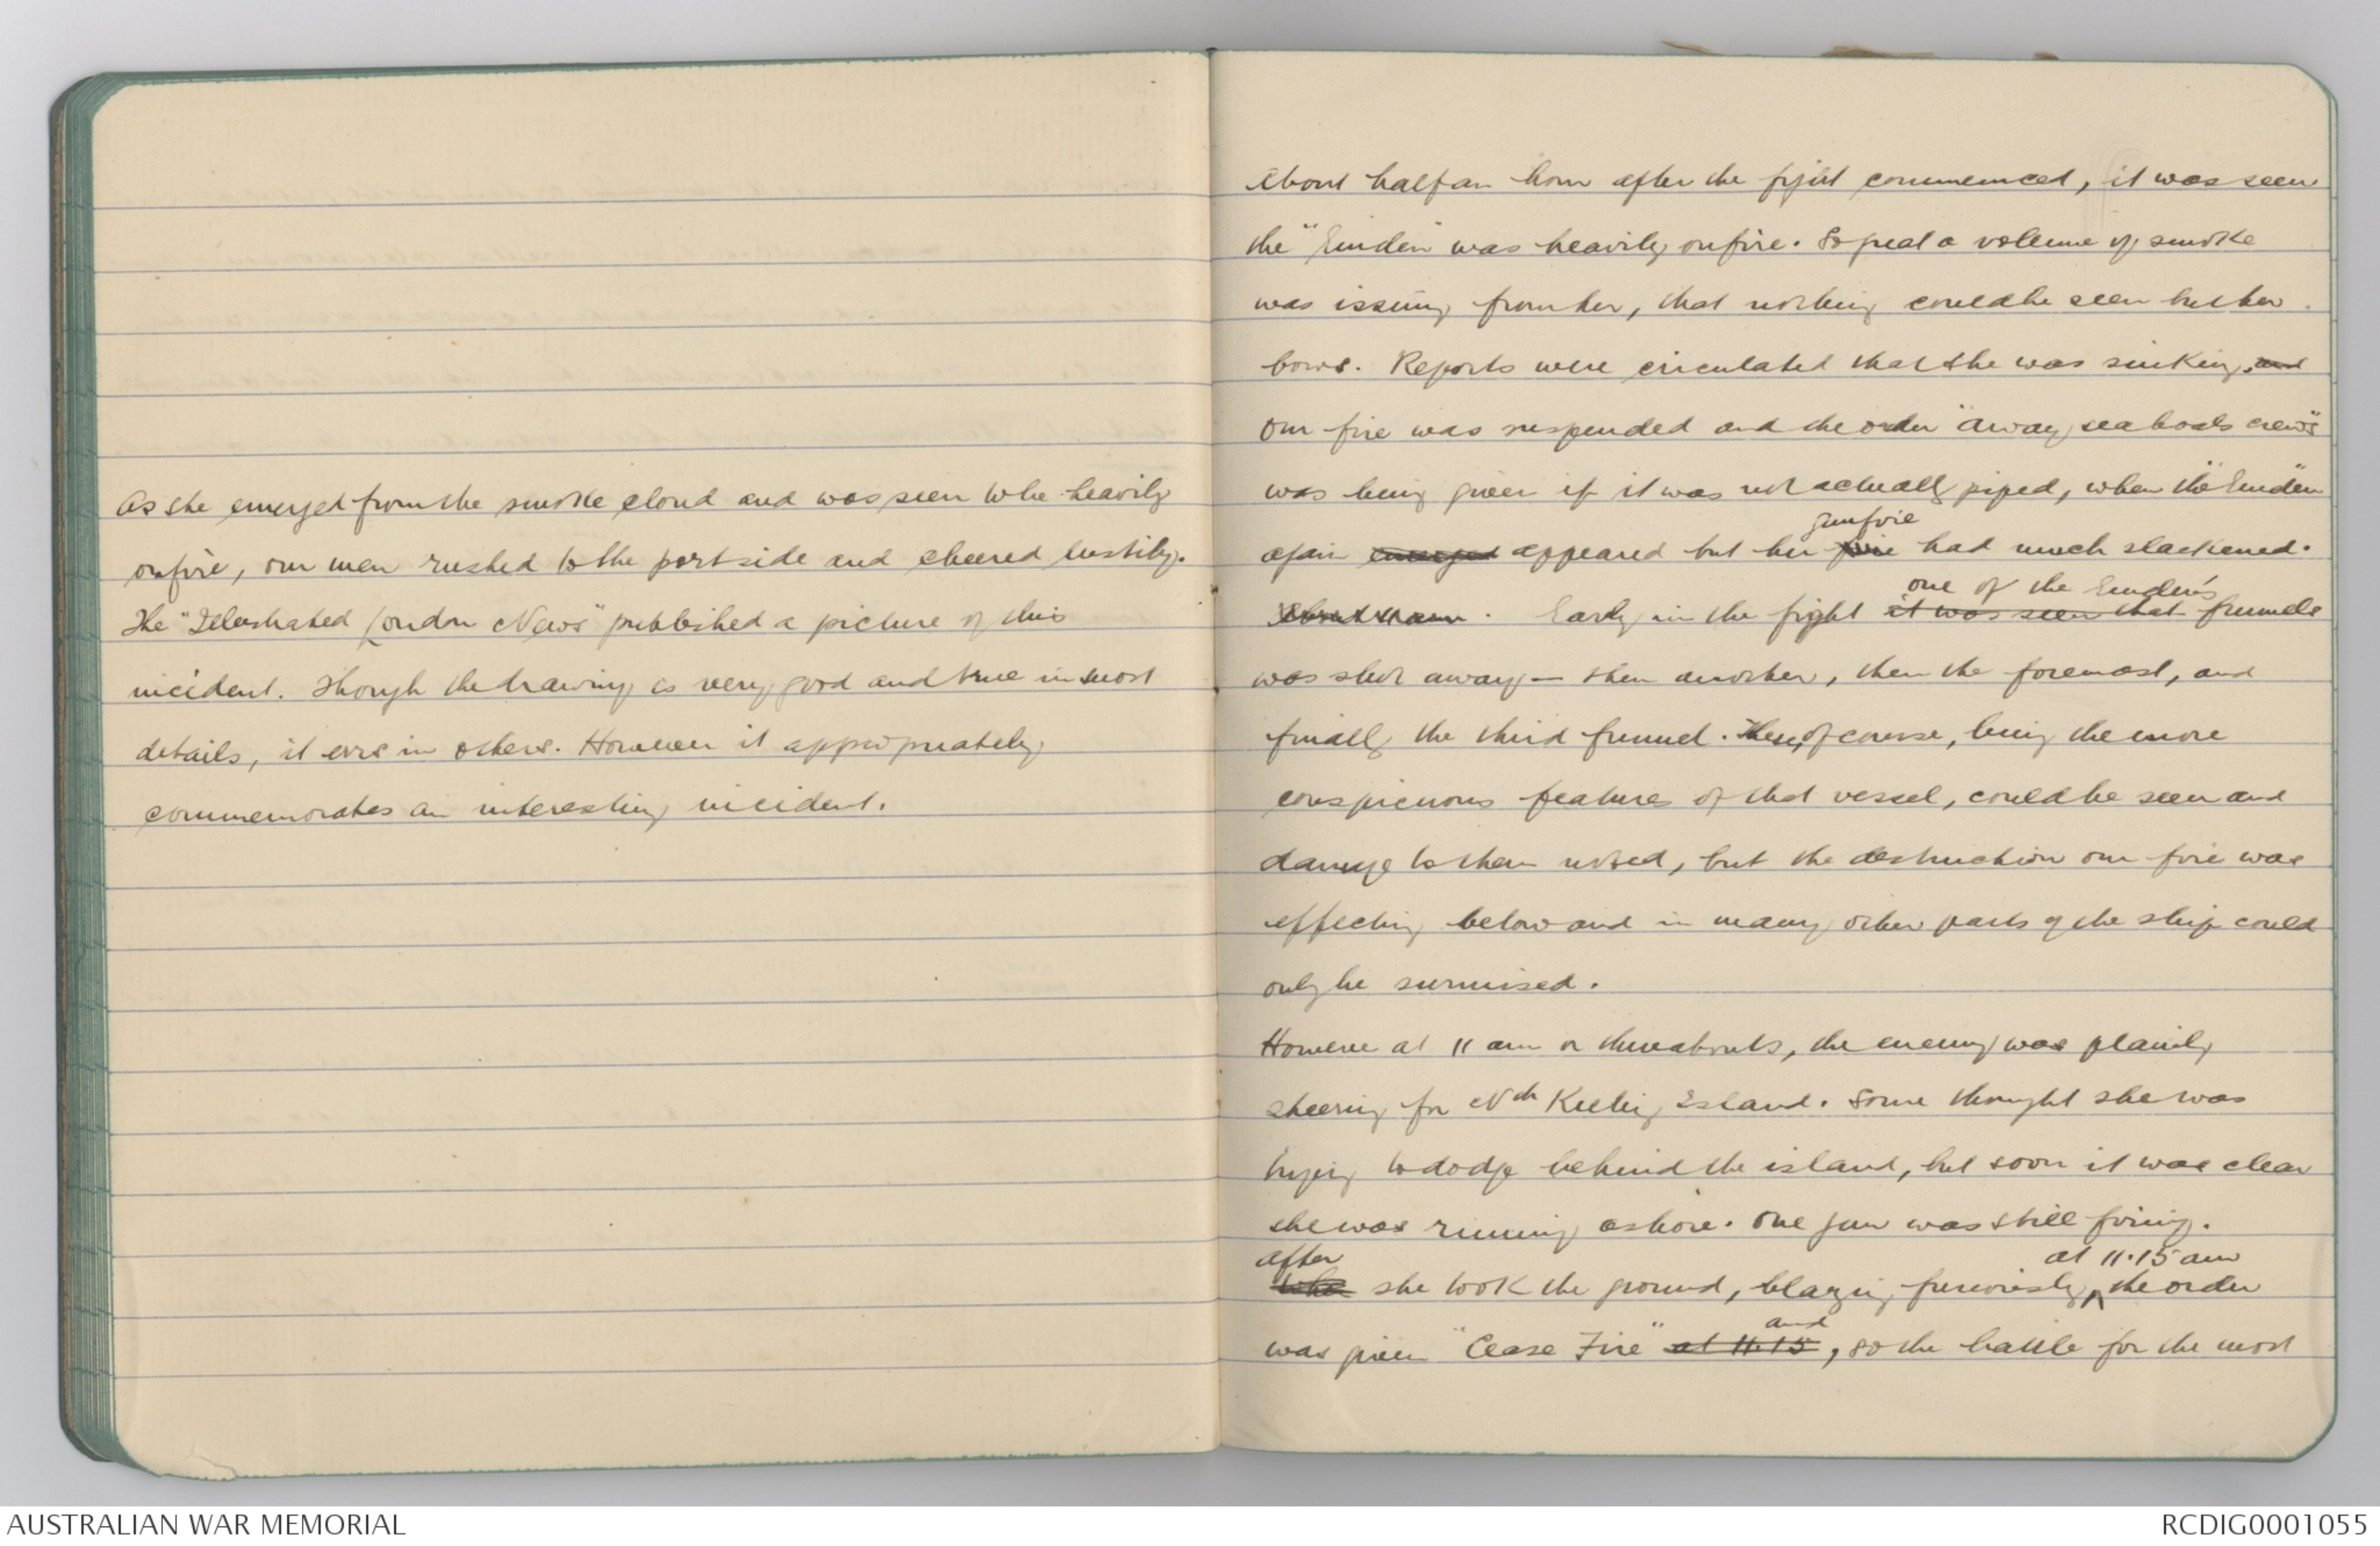 As she emerged from the smoke cloud and was seen to be heavily
on fire, our men rushed to the port side and cheered lustily.
The "Illustrated London News" published a picture of this
incident. Though the drawing is very good and true in most
details, it errs in others. However it appropriately
commemorates an interesting incident.
About half an hour after the fight commenced, it was seen
the "Emden" was heavily on fire. So great a volume of smoke
was issuing from her, that nothing could be seen but her
bows. Reports were circulated that she was sinking, and
our fire was suspended and the order "away sea boats crews"
was being given if it was not actually piped, when the "Emden"
gunfire
again emerged appeared but her fire had much slackened.
one of the Emden's
About 11 am. Early in the fight it was seen that funnels
was shot away – then another, then the foremast, and
finally the third funnel. These, of course, being the more
conspicuous features of that vessel, could be seen and
damage to them noted, but the destruction our fire was
effecting below and in many other parts of the ship could
only be surmised.
However at 11 am or thereabouts, the enemy was plainly
steering for Nth Keeling Island. Some thought she was
trying to dodge behind the island, but soon it was clear
she was running ashore. One gun was still firing.
after at 11.15 am
When she took the ground, blazing furiously, the order
and
was given "Cease Fire" at 11.15, so the battle for the most
AUSTRALIAN WAR MEMORIAL
RCDIG0001055